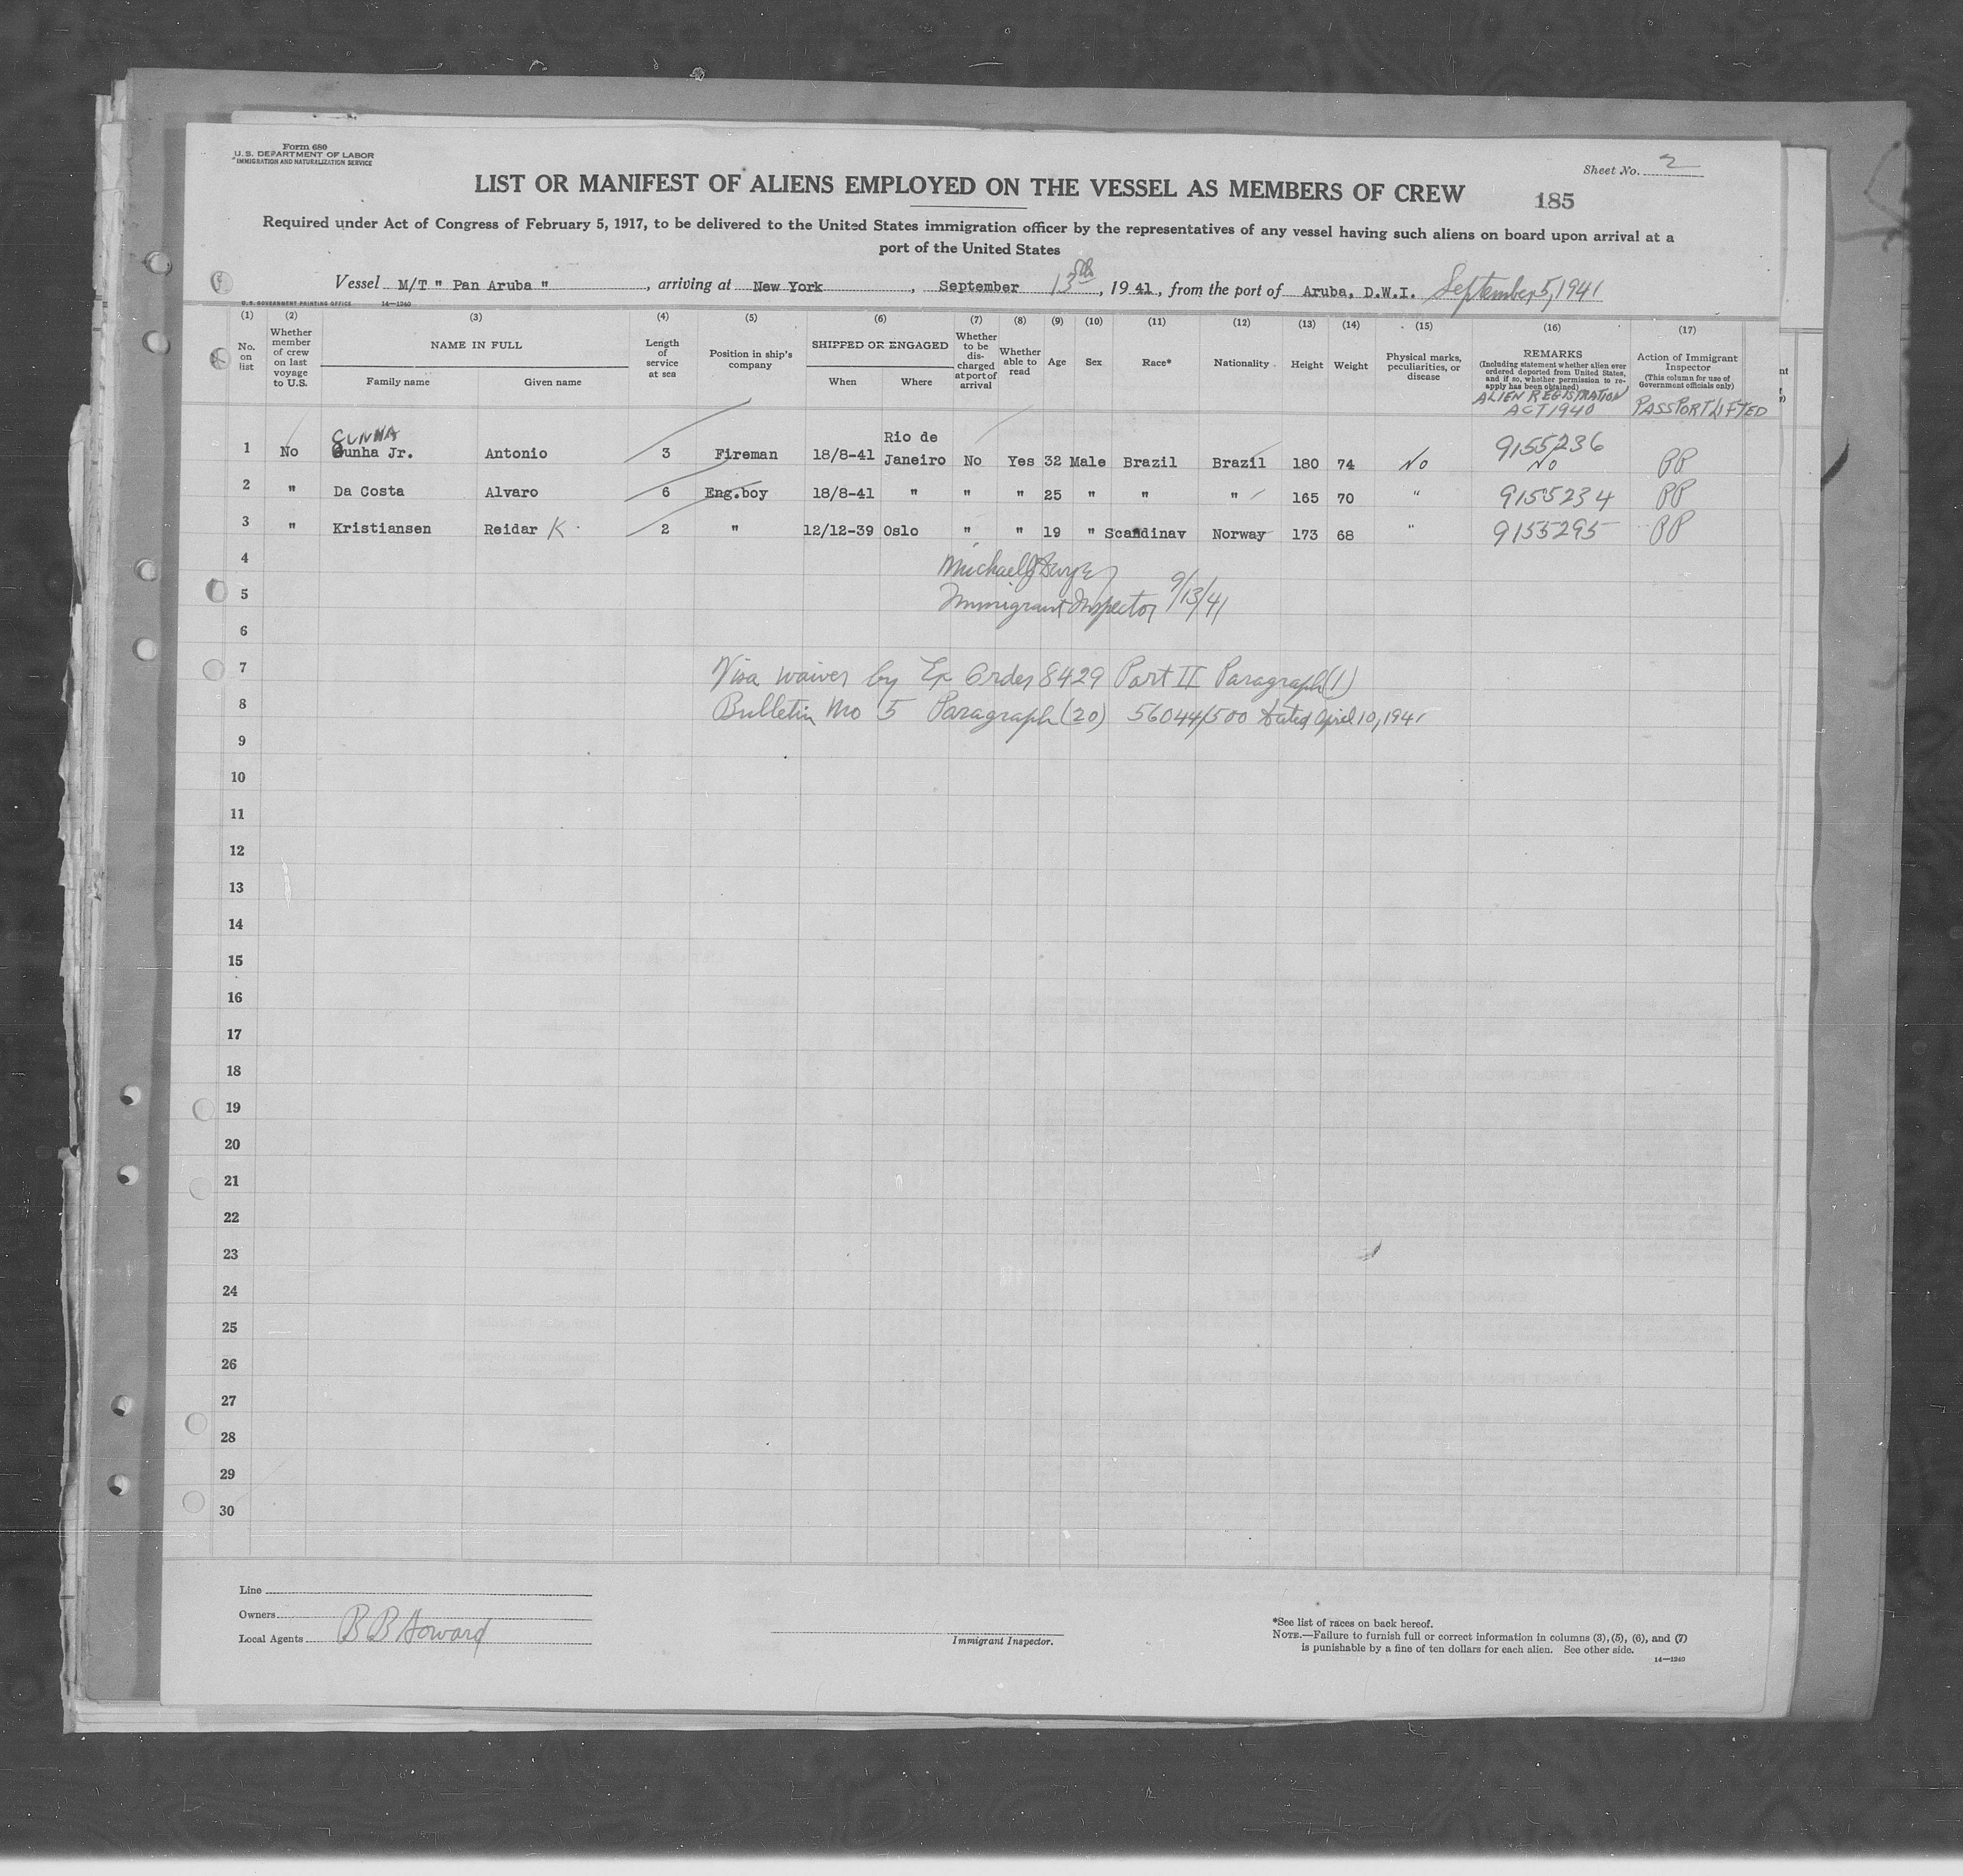 Form 680
U.S. DEPARTMENT OF LABOR
IMMIGRATION AND NATURALIZATION SERVICE
Sheet No. 2
LIST OR MANIFEST OF ALIENS EMPLOYED ON THE VESSEL AS MEMBERS OF CREW
185
Required under Act of Congress of February 5, 1917, to be delivered to the United States immigration officer by the representatives of any vessel having such aliens on board upon arrival at a
port of the United States
Vessel M/T " Pan Aruba ", arriving at New York, September 13th, 1941, from the port of Aruba, D.W.I. September 5, 1941
U.S. GOVERNMENT PRINTING OFFICE 14—1240
(1) (2) (3) (4) (5) (6) (7) (8) (9) (10) (11) (12) (13) (14) (15) (16) (17)
No. on list
Whether member of crew on last voyage to U.S.
NAME IN FULL
Family name
Given name
Length of service at sea
Position in ship's company
SHIPPED OR ENGAGED
When
Where
Whether to be discharged at port of arrival
Whether able to read
Age
Sex
Race*
Nationality
Height
Weight
Physical marks, peculiarities, or disease
REMARKS
(Including statement whether alien ever ordered deported from United States, and if so, whether permission to re-apply has been obtained)
ALIEN REGISTRATION
ACT 1940
Action of Immigrant Inspector
(This column for use of Government officials only)
PASSPORT LIFTED
CUNHA
1 No Cunha Jr. Antonio 3 Fireman 18/8-41 Rio de Janeiro No Yes 32 Male Brazil Brazil 180 74 No 9155236 No PP
2 " Da Costa Alvaro 6 Eng.boy 18/8-41 " " " 25 " " " 165 70 " 9155234 PP
3 " Kristiansen Reidar K. 2 " 12/12-39 Oslo " " 19 " Scandinav Norway 173 68 " 9155295 PP
4
Michael J Dwyer
5
Immigrant Inspector 9/13/41
6
7
Visa waiver by Ex Order 8429 Part II Paragraph (1)
8
Bulletin No 5 Paragraph (20) 56044/500 dated April 10, 194
9
10
11
12
13
14
15
16
17
18
19
20
21
22
23
24
25
26
27
28
29
30
Line
Owners
Local Agents B B Howard
Immigrant Inspector.
*See list of races on back hereof.
NOTE.—Failure to furnish full or correct information in columns (3), (5), (6), and (7)
is punishable by a fine of ten dollars for each alien. See other side.
14—1240